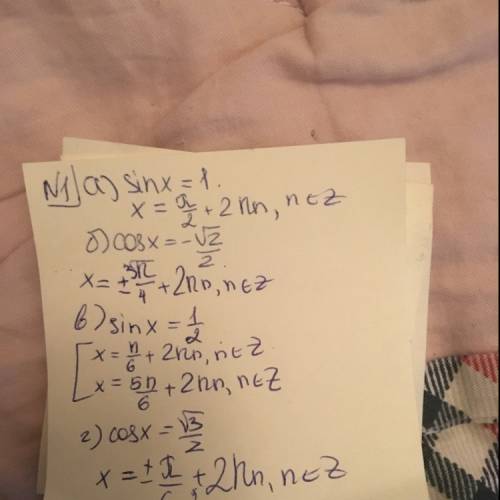 №1 а) sinx = 1.
x = π/2 + 2πn, n∈Z
б) cosx = -√2/2.
x = ±3π/4 + 2πn, n∈Z
в) sinx = 1/2
[ x = π/6 + 2πn, n∈Z
x = 5π/6 + 2πn, n∈Z
г) cosx = √3/2
x = ±π/6 + 2πn, n∈Z